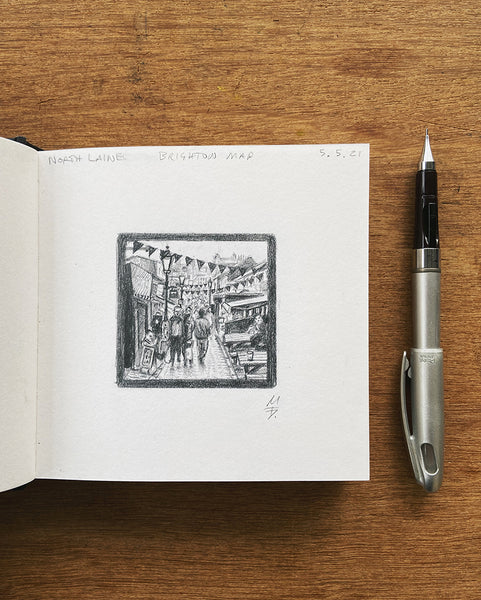 NORTH LAINE BRIGHTON MAP 5.5.21
M
D.